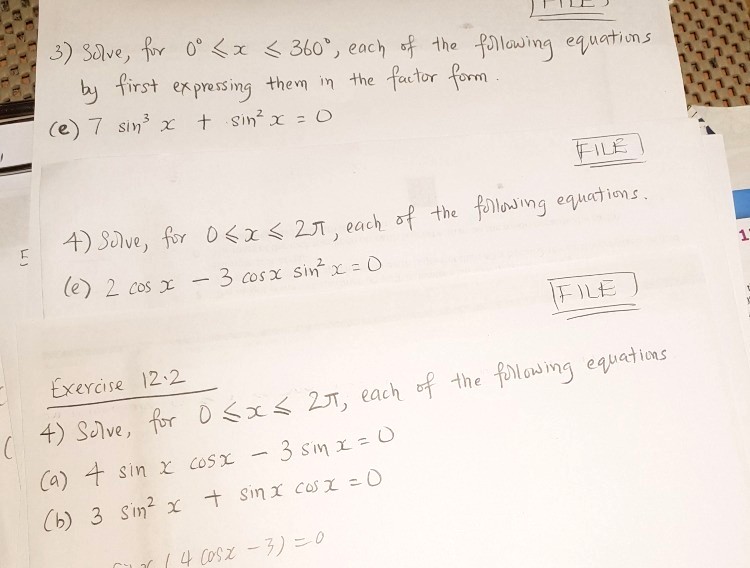 FILE
3) Solve, for 0° ≤ x ≤ 360°, each of the following equations
by first expressing them in the factor form.
(e) 7 sin³ x + sin² x = 0
FILE
4) Solve, for 0 ≤ x ≤ 2π, each of the following equations.
(e) 2 cos x - 3 cosx sin² x = 0
FILE
Exercise 12.2
4) Solve, for 0 ≤ x ≤ 2π, each of the following equations
(a) 4 sin x cosx - 3 sin x = 0
(b) 3 sin² x + sinx cos x = 0
(4 cosx - 3) = 0